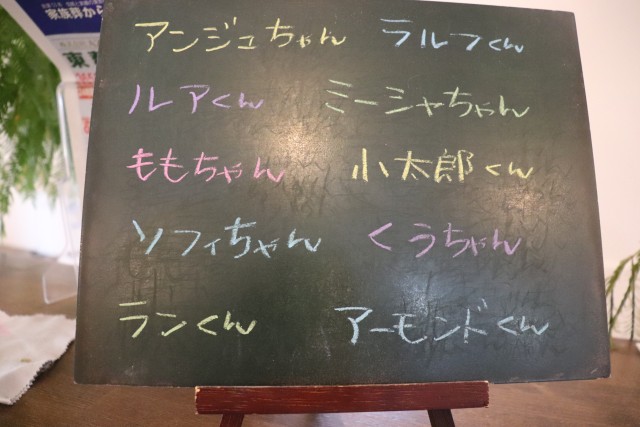 家族葬から
東
アンジュちゃん ラルフくん
ルアくん ミーシャちゃん
ももちゃん 小太郎くん
ソフィちゃん くうちゃん
ランくん アーモンドくん